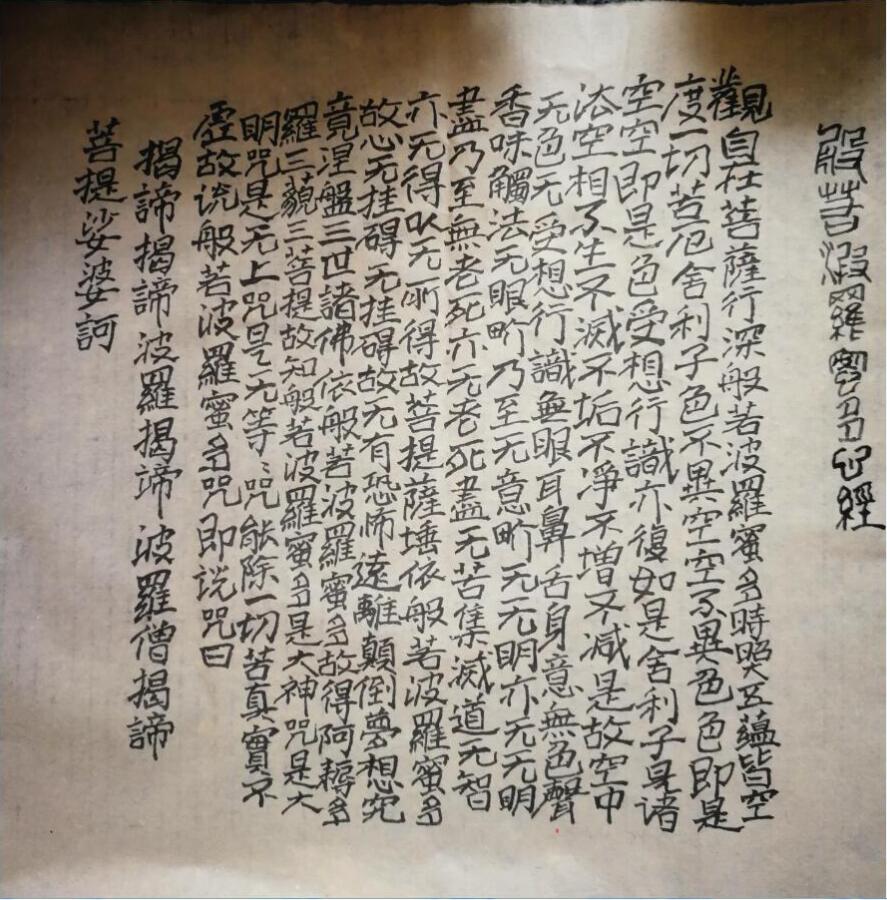 般若波羅蜜多心經
觀自在菩薩行深般若波羅蜜多時照五蘊皆空
度一切苦厄舍利子色不異空空不異色色即是
空空即是色受想行識亦復如是舍利子是诸
法空相不生不滅不垢不净不增不减是故空中
无色无受想行識無眼耳鼻舌身意無色聲
香味觸法无眼界乃至无意界无无明亦无无明
盡乃至無老死亦无老死盡无苦集滅道无智
亦无得以无所得故菩提薩埵依般若波羅蜜多
故心无挂碍无挂碍故无有恐怖遠離顛倒夢想究
竟涅盤三世諸佛依般若波羅蜜多故得阿耨多
羅三藐三菩提故知般若波羅蜜多是大神咒是大
明咒是无上咒是无等〻咒能除一切苦真實不
虛故说般若波羅蜜多咒即说咒曰
揭諦揭諦波羅揭諦波羅僧揭諦
菩提娑婆訶